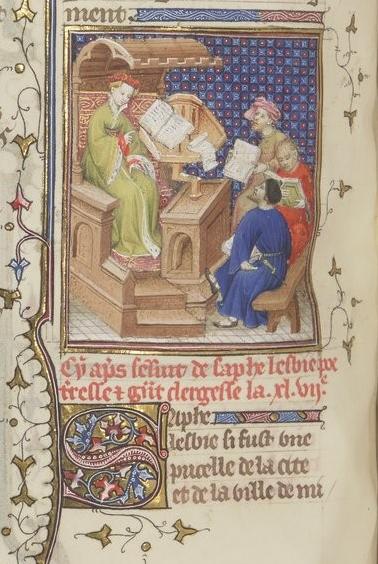 ment.
Cy aps sensuit de saphe lesbie poe
tresse & gñt clergesse la .xl.vijᵉ
Saphe
lesbie si fust vne
pucelle de la cite
et de la ville de mi